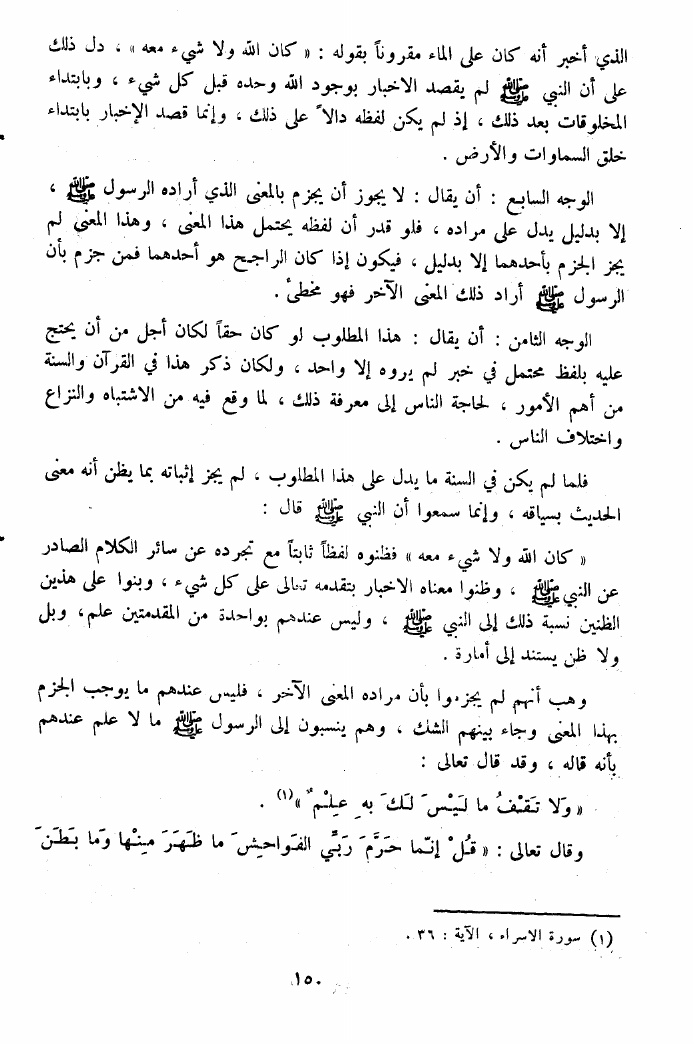 الذي أخبر أنه كان على الماء مقروناً بقوله : « كان الله ولا شيء معه » ، دل ذلك
على أن النبي ﷺ لم يقصد الاخبار بوجود الله وحده قبل كل شيء ، وبابتداء
المخلوقات بعد ذلك ، إذ لم يكن لفظه دالاً على ذلك ، وإنما قصد الإخبار بابتداء
خلق السماوات والأرض .
الوجه السابع : أن يقال : لا يجوز أن يجزم بالمعنى الذي أراده الرسول ﷺ ،
إلا بدليل يدل على مراده ، فلو قدر أن لفظه يحتمل هذا المعنى ، وهذا المعنى لم
يجز الجزم بأحدهما إلا بدليل ، فيكون إذا كان الراجح هو أحدهما فمن جزم بأن
الرسول ﷺ أراد ذلك المعنى الآخر فهو مخطئ .
الوجه الثامن : أن يقال : هذا المطلوب لو كان حقاً لكان أجل من أن يحتج
عليه بلفظ محتمل في خبر لم يروه إلا واحد ، ولكان ذكر هذا في القرآن والسنة
من أهم الأمور ، لحاجة الناس إلى معرفة ذلك ، لما وقع فيه من الاشتباه والنزاع
واختلاف الناس .
فلما لم يكن في السنة ما يدل على هذا المطلوب ، لم يجز إثباته بما يظن أنه معنى
الحديث بسياقه ، وإنما سمعوا أن النبي ﷺ قال :
« كان الله ولا شيء معه » فظنوه لفظاً ثابتاً مع تجرده عن سائر الكلام الصادر
عن النبي ﷺ ، وظنوا معناه الاخبار بتقدمه تعالى على كل شيء ، وبنوا على هذين
الظنين نسبة ذلك إلى النبي ﷺ ، وليس عندهم بواحدة من المقدمتين علم ، وبل
ولا ظن يستند إلى أمارة .
وهب أنهم لم يجزموا بأن مراده المعنى الآخر ، فليس عندهم ما يوجب الجزم
بهذا المعنى وجاء بينهم الشك ، وهم ينسبون إلى الرسول ﷺ ما لا علم عندهم
بأنه قاله ، وقد قال تعالى :
« وَلا تَقْفُ ما لَيْسَ لَكَ بهِ عِلْمٌ »(١) .
وقال تعالى : « قُلْ إنَّما حَرَّمَ رَبِّي الفَواحِشَ ما ظَهَرَ مِنْها وَما بَطَنَ
(١) سورة الاسراء ، الآية : ٣٦ .
١٥٠